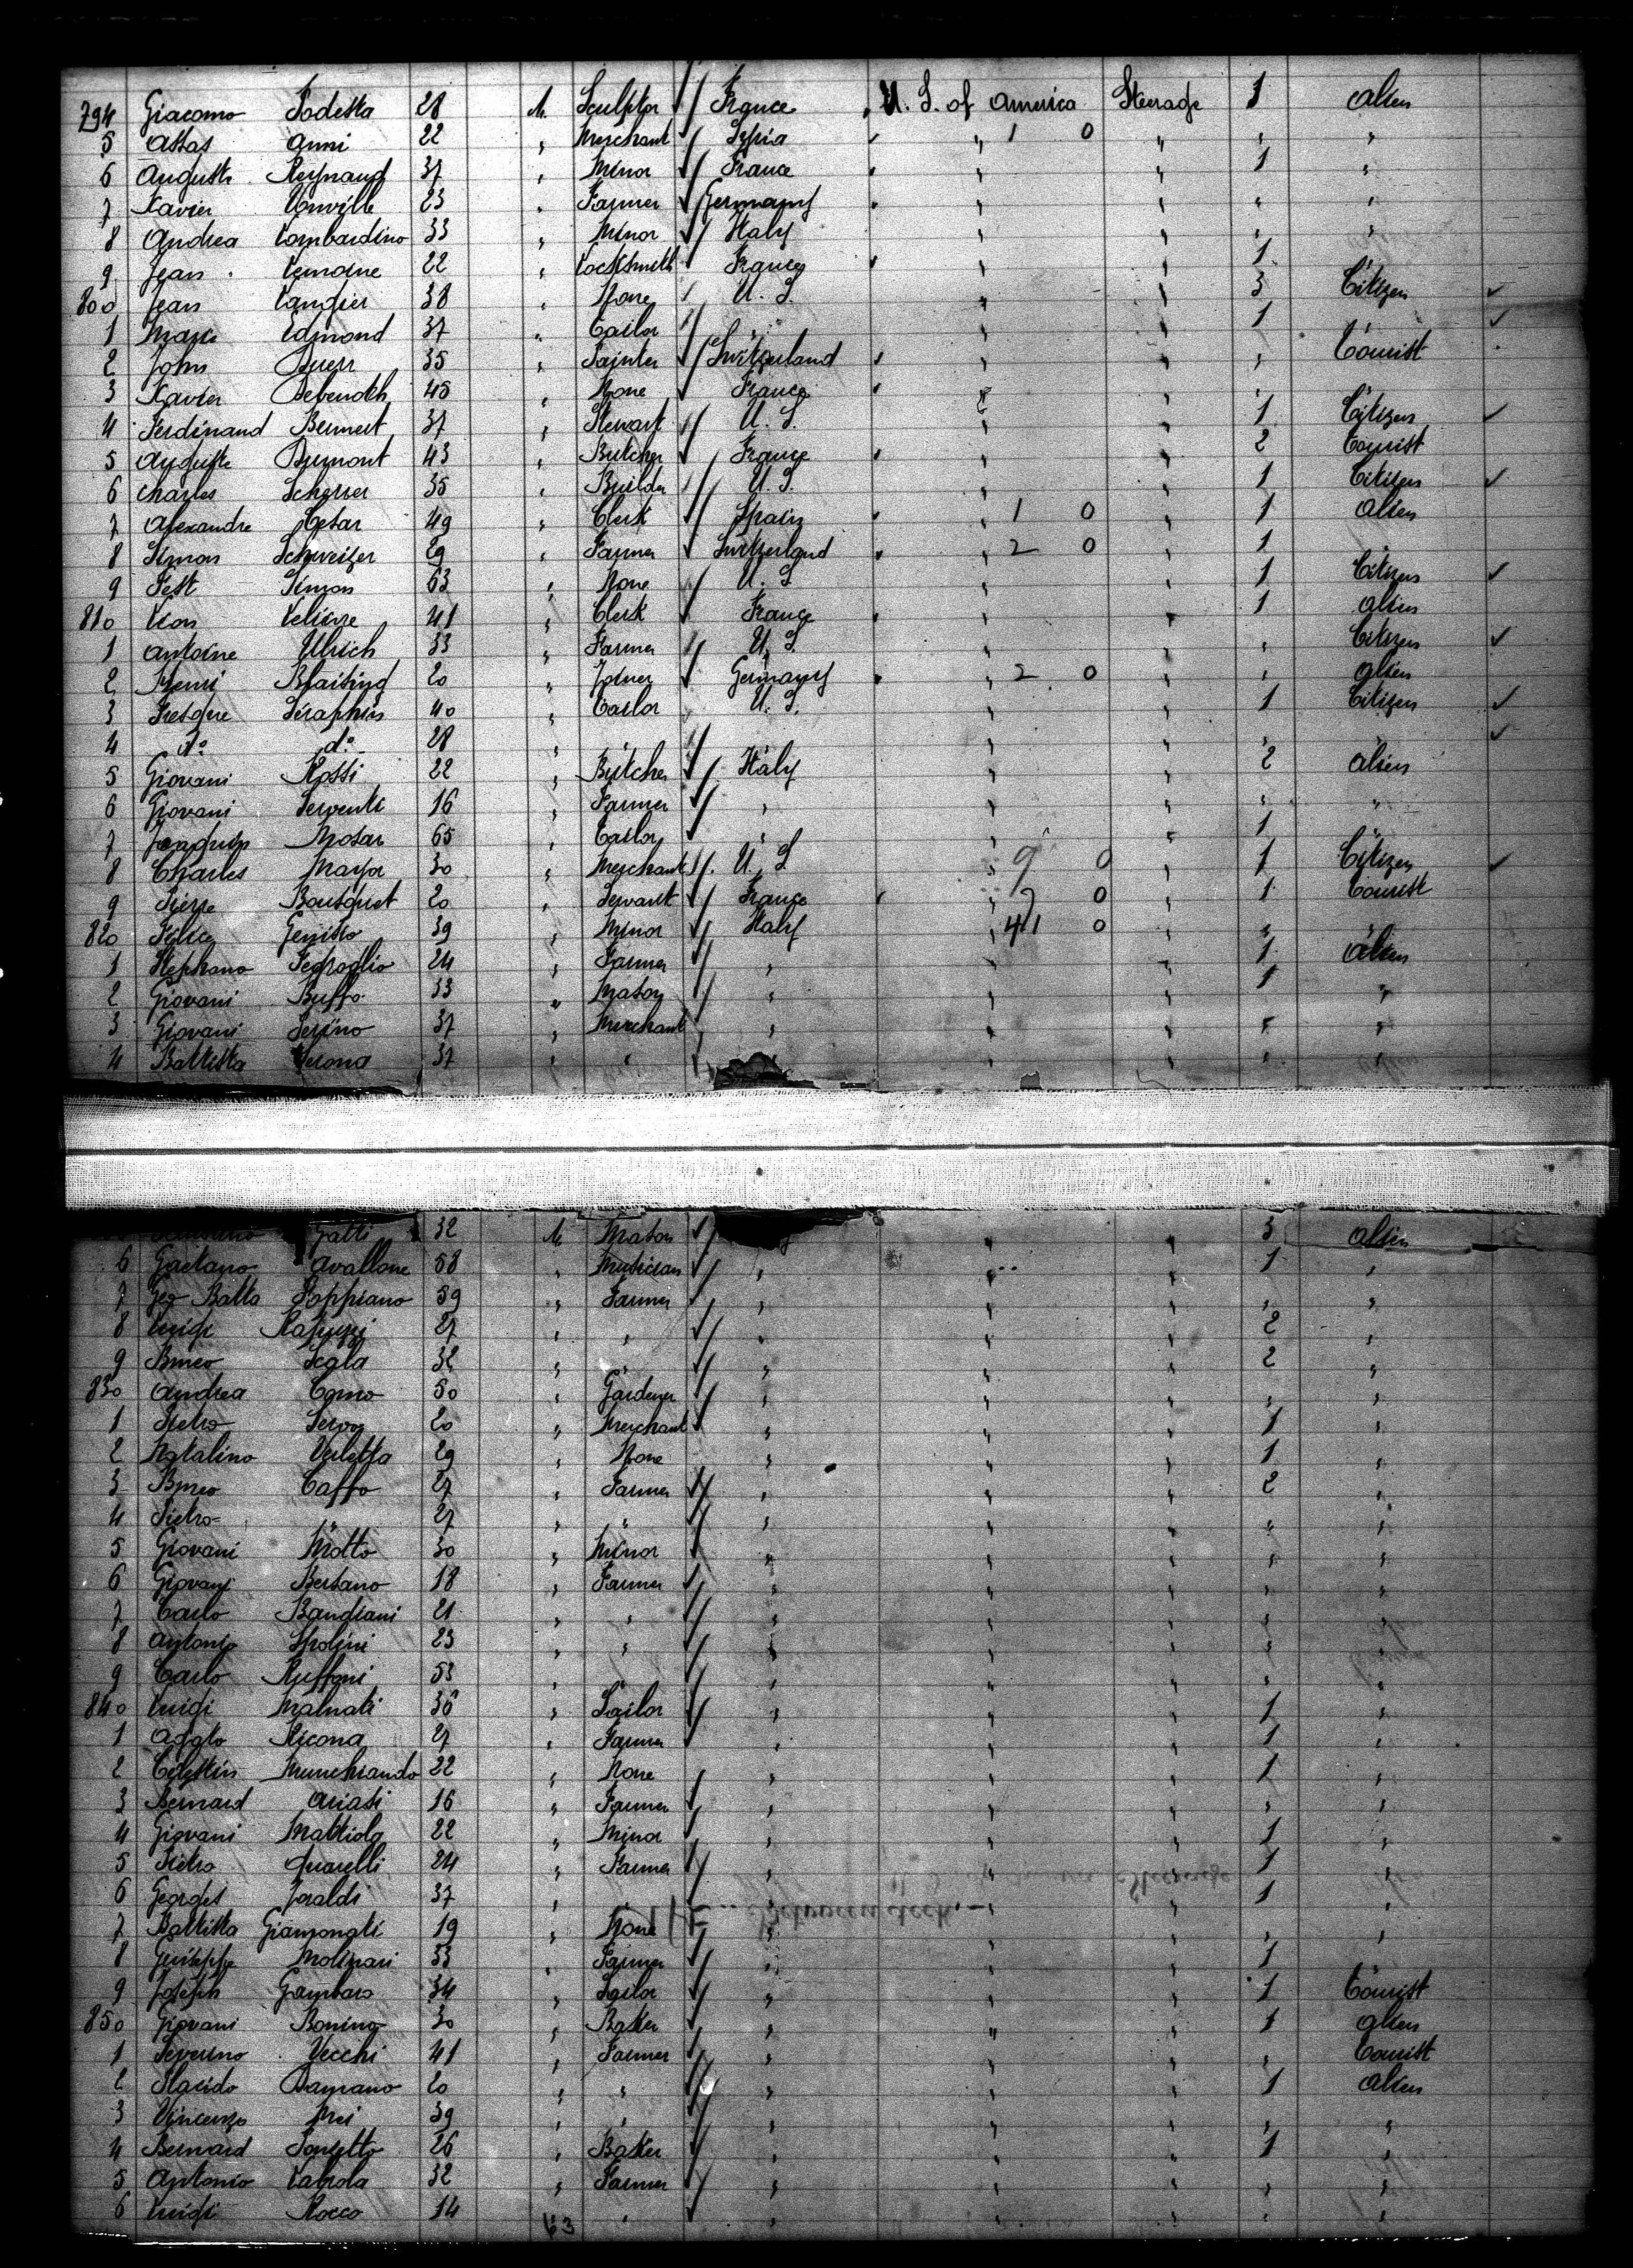 794 Giacomo Podesta 28 M. Sculptor France U. S. of America Steerage 1 Alien
5 Assas Anni 22 " Merchant Syria " 1 0 " " "
6 Auguste Reynaud 37 " Minor France " " 1 "
7 Xavier 23 " Farmer Germany " " " "
8 Andrea Lombardino 33 " Minor Italy " " " "
9 Jean Lemoine 22 " Locksmith France " " 1
800 Jean Laugier 38 " None U. S. " " 3 Citizen
1 Marx Edmond 37 " Tailor " " " 1
2 John Duerr 35 " Painter Switzerland " " " Tourist
3 Xavier 45 " None France " " "
4 Ferdinand Bennert 37 " Stewart U. S. " " 1 Citizen
5 Auguste Dumont 43 " Butcher France " " 2 Tourist
6 Charles Scherrer 35 " Builder U. S. " " 1 Citizen
7 Alexandre Cesar 49 " Clerk Spain " 1 0 " 1 Alien
8 Simon Schweizer 29 " Farmer Switzerland " 2 0 " 1 "
9 Simon 63 " None U. S. " " 1 Citizen
810 Leon 41 " Clerk France " " 1 Alien
1 Antoine Ullrich 33 " Farmer U. S. " " " Citizen
2 Henri 20 " Joiner Germany " 2 0 " " Alien
3 Seraphin 40 " Tailor U. S. " " 1 Citizen
4 do do 28 " " " " " "
5 Giovani Rossi 22 " Butcher Italy " " 2 Alien
6 Giovani Serventi 16 " Farmer " " " " "
7 65 " Tailor " " " 1 "
8 Charles Mayor 30 " Merchant U. S. " 9 0 " 1 Citizen
9 Pierre Bousquet 20 " Servant France " 0 " 1 Tourist
820 Felice 39 " Minor Italy " 41 0 " " "
1 Stephano 24 " Farmer " " " 1 Alien
2 Giovani Buffo 33 " Mason " " " 1 "
3 Giovani Perino 37 " Merchant " " " " "
4 Battista Verona 37 " " " " " "
Gatti 32 M. Mason " " 3 Alien
6 Gaetano Avallone 58 " Musician " " " 1 "
7 Geo Batta Poppiano 59 " Farmer " " " " "
8 Luigi 27 " " " " " 2 "
9 Bmeo 32 " " " " " 2 "
830 Andrea Como 50 " Gardener " " " " "
1 Pietro 20 " Merchant " " " 1 "
2 Natalino Verletta 29 " None " " " 1 "
3 Bmeo Caffo 27 " Farmer " " " 2 "
4 Pietro " 27 " " " " " " "
5 Giovani Motto 30 " Minor " " " " "
6 Giovani Bersano 18 " Farmer " " " " "
7 Carlo Bandiani 21 " " " " " " "
8 Antonio Spolini 23 " " " " " " "
9 Carlo Ruffoni 53 " " " " " " "
840 Luigi Malnati 36 " Sailor " " " 1 "
1 Ricona 27 " Farmer " " " 1 "
2 Celestin Munchiando 22 " None " " " 1 "
3 Bernard Ariasi 16 " Farmer " " " " "
4 Giovani Mattiola 22 " Minor " " " 1 "
5 Pietro Quarelli 24 " Farmer " " " 1 "
6 Georges Joraldi 37 " " " " " 1 "
7 Battista Giamongli 19 " None " " " " "
8 Guiseppe Molinari 33 " Farmer " " " 1 "
9 Joseph Gambaro 34 " Sailor " " " 1 Tourist
850 Giovani Bonino 30 " Baker " " " 1 Alien
1 Severino Vecchi 41 " Farmer " " " " Tourist
2 Placido Damiano 20 " " " " " 1 Alien
3 Vincenzo Mei 39 " " " " " " "
4 Bernard Ponsetto 26 " Baker " " " 1 "
5 Antonio 32 " Farmer " " " " "
6 Luigi Rocco 14 " " " " " "
63